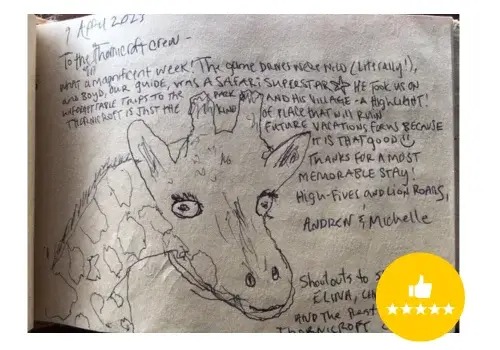 9 April 2023
To the Thornicroft crew -
What a magnificent week! The game drives were wild (literally!),
and Boyd, our guide, was a safari superstar He took us on
unforgettable trips to the park and his village - a highlight!
Thornicroft is just the kind of place that will ruin
future vacations for us because
it is that good
Thanks for a most
memorable stay!
High-fives and lion roars,
Andrew & Michelle
Shoutouts to
Elina,
and the rest
Thornicroft